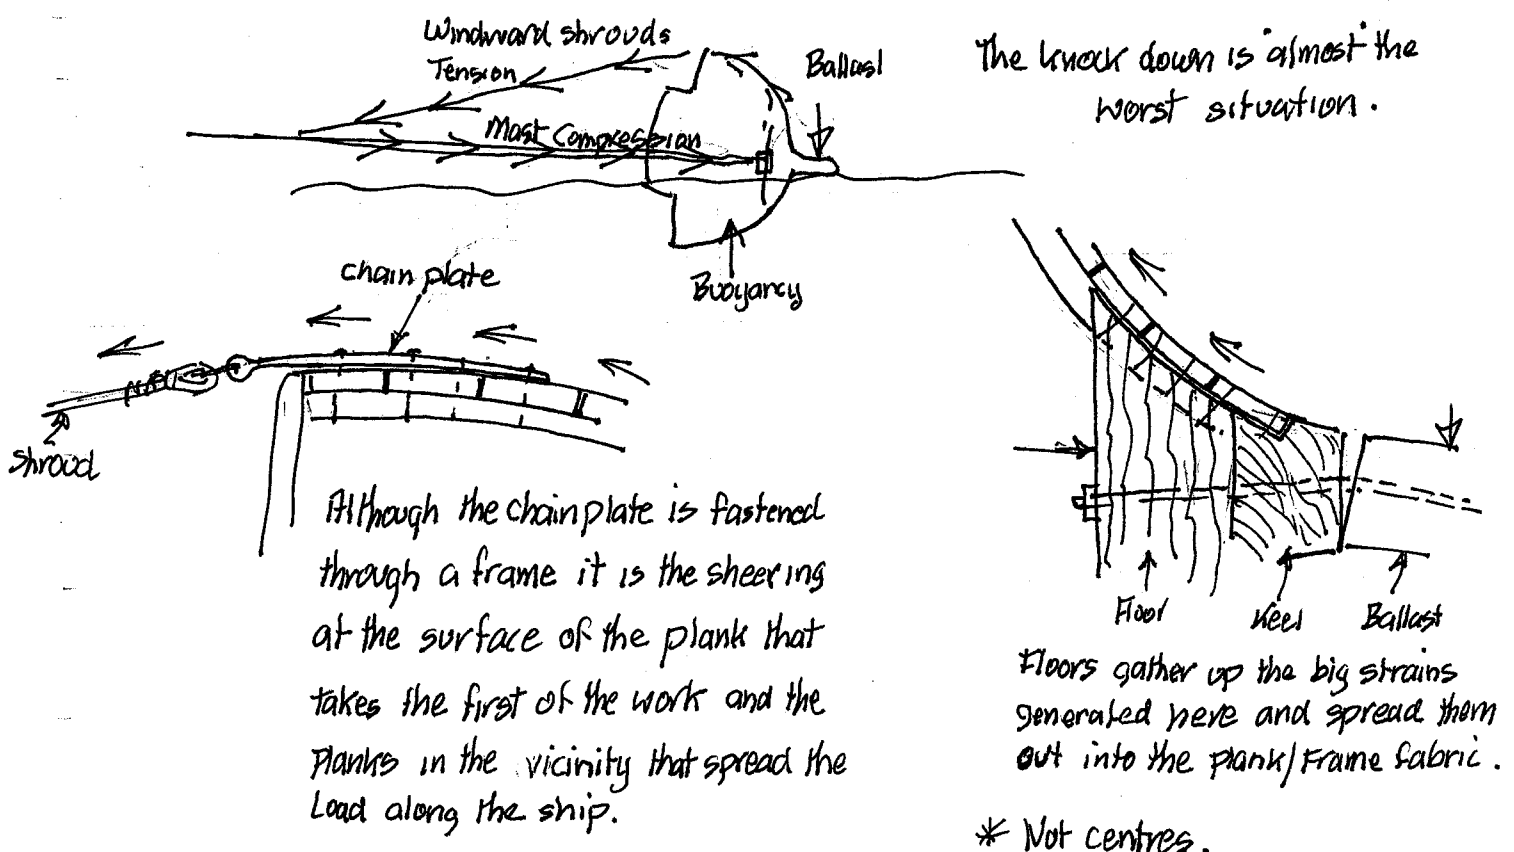 Windward shrouds
Tension
Ballast
Mast Compression
Buoyancy
The knock down is "almost" the
worst situation.
chain plate
shroud
Although the chainplate is fastened
through a frame it is the sheering
at the surface of the plank that
takes the first of the work and the
planks in the vicinity that spread the
Load along the ship.
Floor
Keel
Ballast
Floors gather up the big strains
generated here and spread them
out into the plank/Frame fabric.
* Not centres.